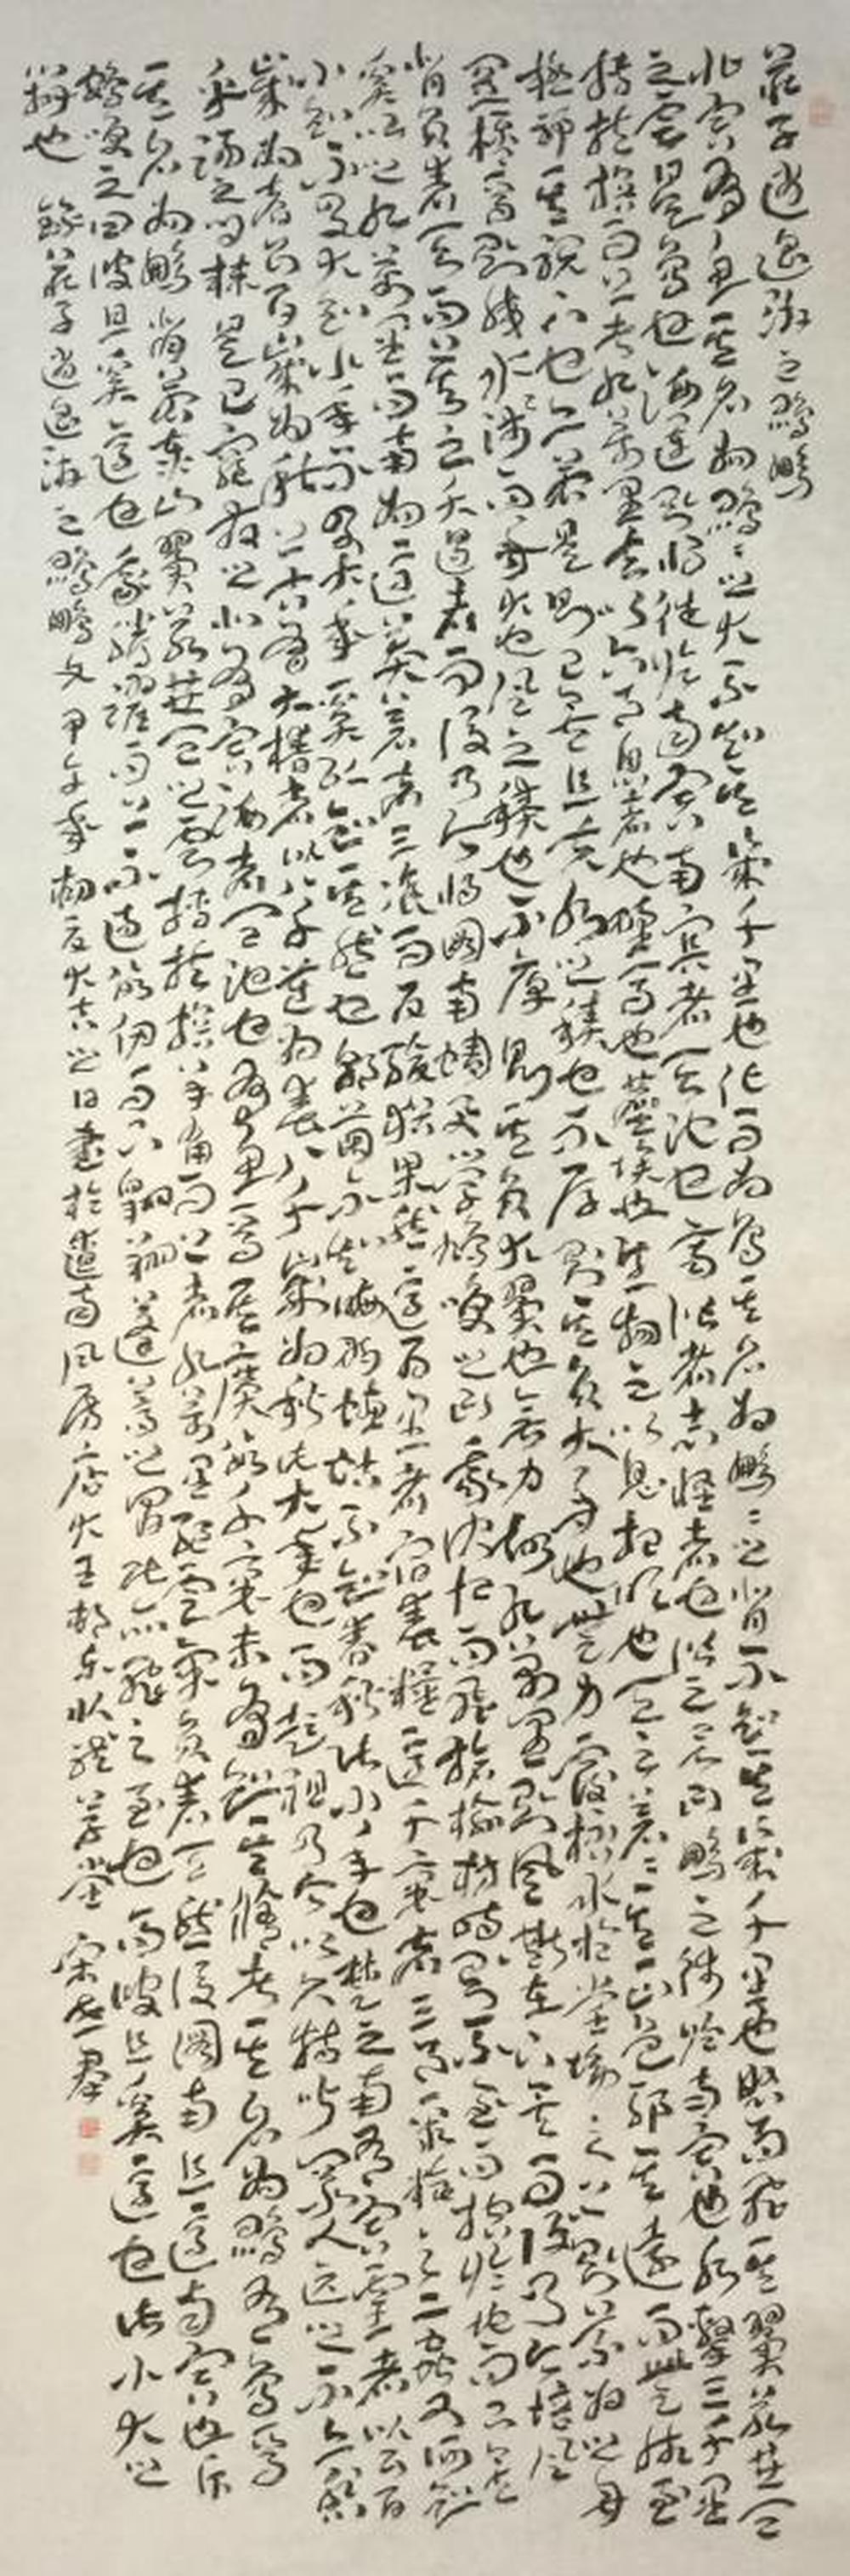 莊子逍遥游之鵾鹏
北冥有魚其名為鵾鵾之大不知其幾千里也化而為鳥其名為鹏鹏之背不知其幾千里也怒而飛其翼若垂天
之雲是鳥也海運則将徙於南冥南冥者天池也齊諧者志怪者也諧之言曰鹏之徙於南冥也水擊三千里
摶扶摇而上者九萬里去以六月息者也野馬也塵埃也生物之以息相吹也天之蒼蒼其正色邪其遠而無所至
極邪其視下也亦若是則已矣且夫水之積也不厚則其負大舟也無力覆杯水於坳堂之上則芥為之舟
置杯焉則膠水淺而舟大也風之積也不厚則其負大翼也無力故九萬里則風斯在下矣而後乃今培風
背負青天而莫之夭閼者而後乃今将圖南蜩與學鳩笑之曰我决起而飛槍榆枋時則不至而控於地而已矣
奚以之九萬里而南為適莽蒼者三飡而反腹猶果然適百里者宿舂糧適千里者三月聚糧之二蟲又何知
小知不及大知小年不及大年奚以知其然也朝菌不知晦朔蟪蛄不知春秋此小年也楚之南有冥靈者以五百
歲為春五百歲為秋上古有大椿者以八千歲為春八千歲為秋此大年也而彭祖乃今以久特聞衆人匹之不亦悲
乎湯之問棘是已窮髮之北有冥海者天池也有魚焉其廣數千里未有知其脩者其名為鵾有鳥焉
其名為鹏背若泰山翼若垂天之雲摶扶摇羊角而上者九萬里絶雲氣負青天然後圖南且適南冥也斥
鴳笑之曰彼且奚適也我騰躍而上不過數仞而下翱翔蓬蒿之間此亦飛之至也而彼且奚適也此小大之
辯也 錄莊子逍遥游之鵾鹏文甲午年